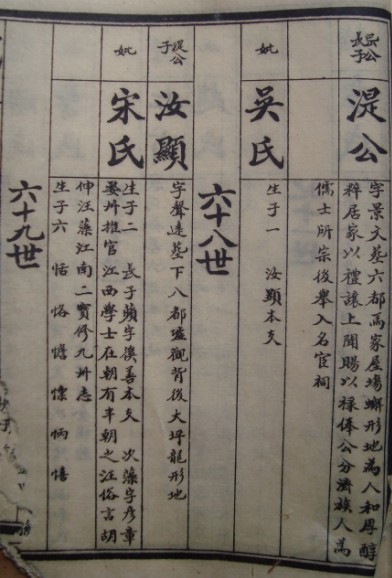 公長子
湜公
字景文墓六都馬家屋場螄形地為人和厚醇
粹居家以禮讓上聞賜以祿俸公分濟族人為
儒士所宗後舉入名宦祠
妣
吳氏
生子一 汝顯本支
六十八世
湜公子
汝顯
字聲遠墓下八都觀背後大坪龍形地
妣
宋氏
生子二 長子蘋字善本支 次藻字彥章
婺州推官江西學士在朝有半朝之汪俗言胡
仲汪藻江南二寶修九州志
生子六 恬 恪 憺 懍 怲 憘
六十九世